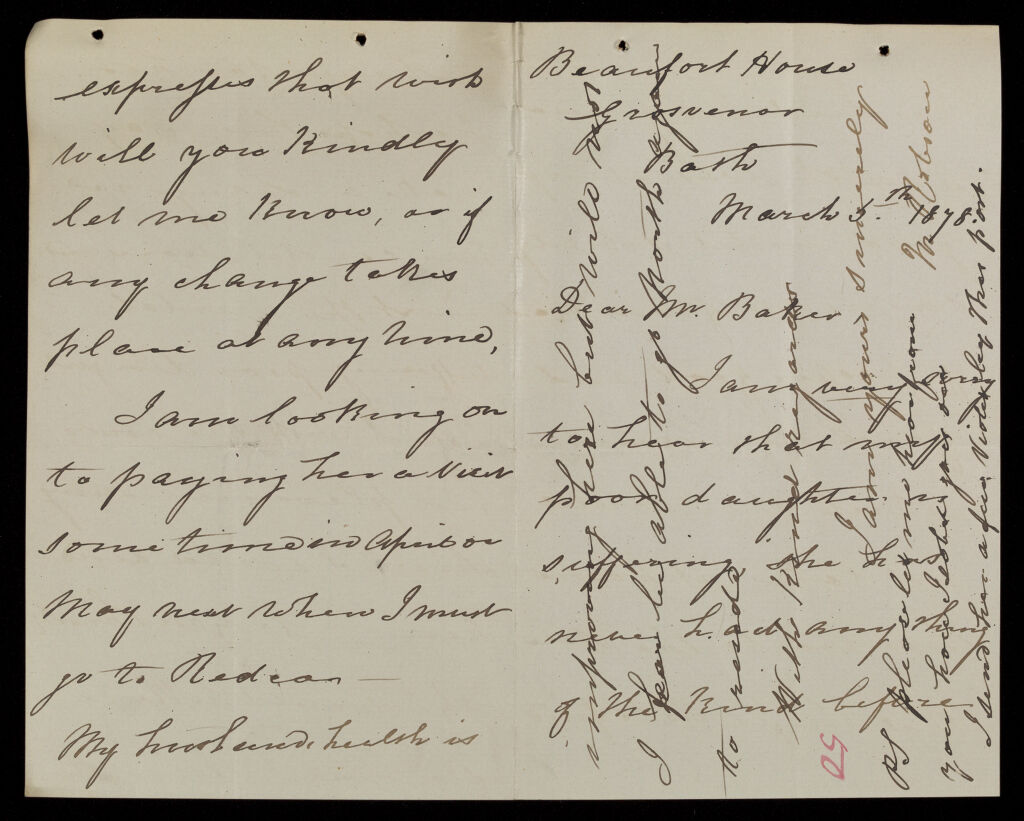 Beaufort House
Grosvenor
Bath
March 5th 1878.
Dear Mr. Baker
I am very sorry
to hear that my
poor daughter is
suffering, she has
never had any thing
of the Kind before
expresses that wish
will you Kindly
let me Know, or if
any change takes
place at any time,
I am looking on
to paying her a Visit
some time in April or
May next when I must
go to Redcar —
My husbands health is
improving here but will not
I fear be able to go North again
to reside
With Kind regards
I am yours sincerely
M
PS please let me hear from
you how
I send her a few Violets by this post.
50